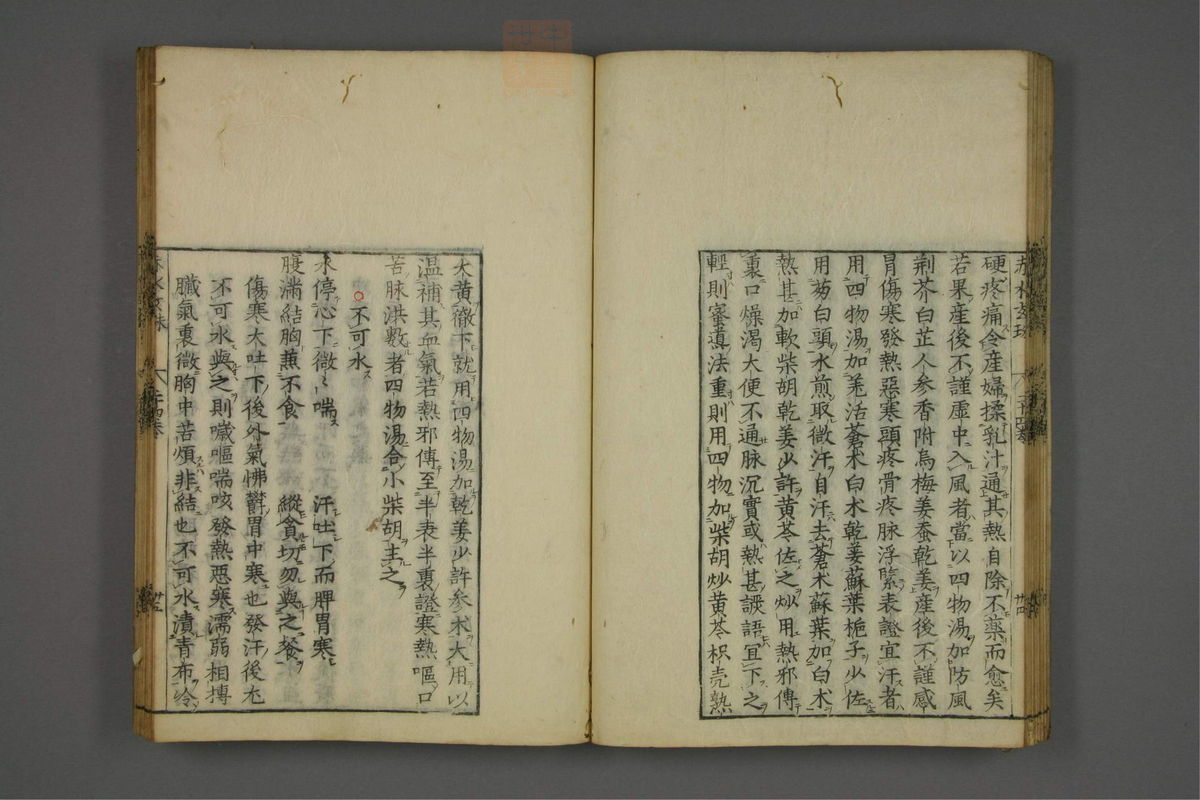 硬疼痛令産婦揉乳汁通其熱自除不薬而愈矣
若果産後不謹虚中入風者當以四物湯加防風
荆芥白芷人参香附烏梅姜蚕乾姜産後不謹感
胃傷寒發熱惡寒頭疼骨疼脉浮緊表證宜汗者
用四物湯加羌活蒼术白术乾姜蘇葉梔子少佐
用葱白頭水煎取微汗自汗去蒼术蘇葉加白术
熱甚加軟柴胡乾姜少許黄芩佐之炒用熱邪傳
裏口燥渴大便不通脉沉實或熱甚譫語宜下之
輕則蜜導法重則用四物加柴胡炒黄芩枳壳熟
大黄徹下就用四物湯加乾姜少許参术大用以
温補其血氣若熱邪傳至半表半裏證寒熱嘔口
苦脉洪數者四物湯合小柴胡主之
不可水
水停心下微〻喘 汗吐下而脾胃寒
腹満結胸兼不食 縱貪切勿與之飡
傷寒大吐下後外氣怫鬱胃中寒也發汗後尢
不可水與之則噦嘔喘咳發熱惡寒濡弱相摶
臓氣裏微胸中苦煩非結也不可水漬青布冷